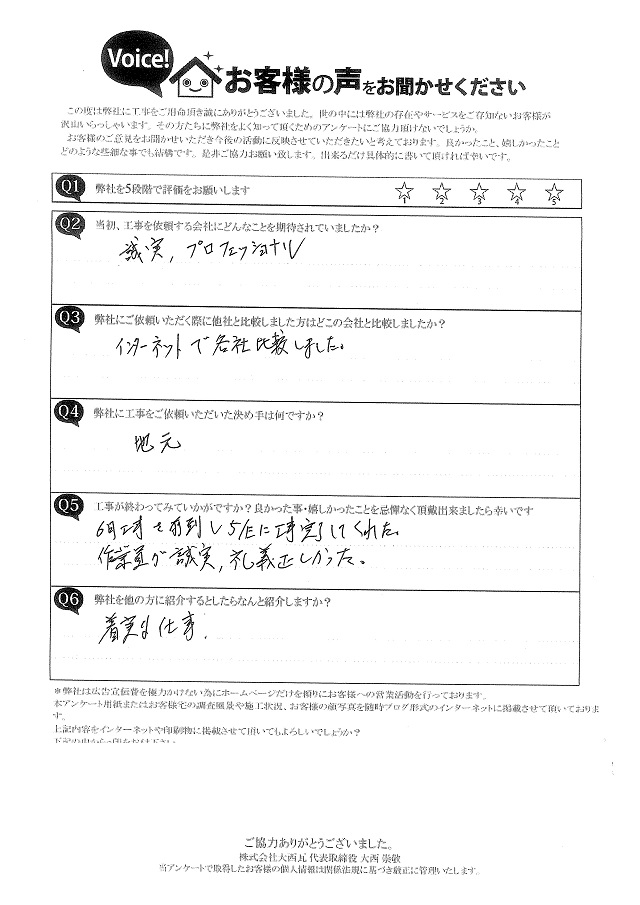 Voice!
お客様の声をお聞かせください
この度は弊社に工事をご用命頂き誠にありがとうございました。世の中には弊社の存在やサービスをご存知ないお客様が
沢山いらっしゃいます。その方たちに弊社をよく知って頂くためのアンケートにご協力頂けないでしょうか。
お客様のご意見をお聞かせいただき今後の活動に反映させていただきたいと考えております。良かったこと、嬉しかったこと
どのような些細な事でも結構です。是非ご協力お願い致します。出来るだけ具体的に書いて頂ければ幸いです。
Q1 弊社を5段階で評価をお願いします
1 2 3 4 5
Q2 当初、工事を依頼する会社にどんなことを期待されていましたか？
誠実，プロフェッショナル
Q3 弊社にご依頼いただく際に他社と比較しました方はどこの会社と比較しましたか？
インターネットで各社比較しました。
Q4 弊社に工事をご依頼いただいた決め手は何ですか？
地元
Q5 工事が終わってみていかがですか？良かった事・嬉しかったことを忌憚なく頂戴出来ましたら幸いです
6月工事を前倒し5/Eに工事完了してくれた。
作業員が誠実，礼義正しかった。
Q6 弊社を他の方に紹介するとしたらなんと紹介しますか？
着実な仕事．
＊弊社は広告宣伝費を極力かけない為にホームページだけを頼りにお客様への営業活動を行っております。
本アンケート用紙またはお客様宅の調査風景や施工状況、お客様の顔写真を随時ブログ形式のインターネットに掲載させて頂いておりま
す。
上記内容をインターネットや印刷物に掲載させて頂いてもよろしいでしょうか？
ご協力ありがとうございました。
株式会社大西瓦 代表取締役 大西 崇敬
当アンケートで取得したお客様の個人情報は関係法規に基づき厳正に管理いたします。